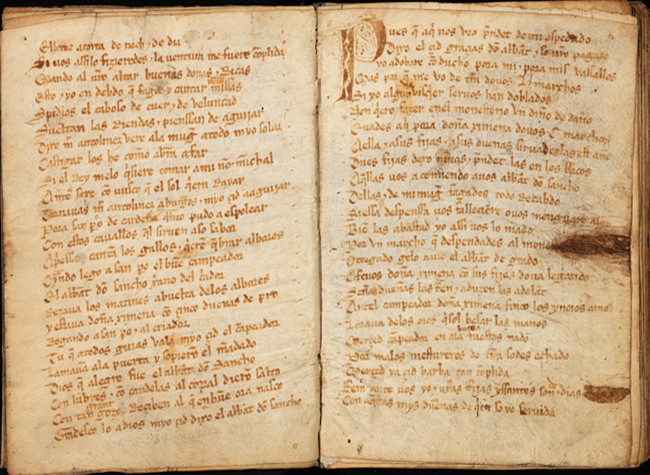 Ellame acorra de noch & de dia
Si uos assilo fizieredes & la uentura me fuere cõplida
Mando al ũro altar buenas donas & Ricas
Esto & yo en debdo q̃ faga y cantar mill missas
Spidios el caboso de cuer & de veluntad
Sueltan las Riendas & pienssan de aguijar
Dixo mr̃ antolinez vere ala mugr̃ atodo myo solaz
Castigar los he como abrã afar
Si el Rey melo q̃siere tomar ami nõ minchal
Antes sere cõ uusco q̃ el sol q̃era Rayar
Tornauas mr̃ antolinez aburgos & myo çid aaguijar
Pora san po de cardeña q̃nto pudo a espolear
Con estos cauallos q̃l siruen aso sabor
Apriessa cantã los gallos & q̃erẽ q̃brar albores
Q̃ndo lego a san po el buẽ campeador
El abbat dõ sancho xano del criador
Rezaua los matines abuelta delos albores
y estaua doña ximena cõ çinco dueñas de pro
Rogando a san po & al criador
Tu q̃ atodos guias val a myo çid el cãpeador
Lamauã ala puerta y sopierõ el mãdado
Dios q̃ alegre fue el abbat dõ sancho
Con lũbres & cõ candelas al corral dierõ salto
Con tan grãt gozo Reçiben al q̃ en buẽ ora nasco
Gradesco lo adios myo çid dixo el abbat dõ sancho
Pues q̃ aq̃ uos veo p̃ndet de mi ospedado
Dixo el çid graçias dõ abbat & so ũro pagado
yo adobare cõducho pora mi & pora mis vassallos
Mas por q̃ me vo de trã douos L marchos
Si yo algun visquier seruos han doblados
Non q̃ero fazer enel monesterio vn diño de daño
Euades aq̃ pora doña ximena douos C marchos
Aella & asus fijas & asus dueñas siruades las est año
Dues fijas dexo niñas & p̃ndet las en los braços
Aq̃llas uos acomiendo auos abbat dõ sancho
Dellas & de mi mugr̃ fagades todo Recabdo
Si essa despenssa uos falleçiere o uos menguare algo
Biẽ las abastad yo assi uos lo mãdo
Por vn marcho q̃ despendades al mon
Otorgado gelo auie el abbat de grado
Afeuos doña ximena cõ sus fijas do ua legando
Señas dueñas las trẽ & aduzen las adelãt
Antel campeador doña ximena finco los ynoios amos
Loraua delos oios q̃sol besar las manos
Merçed campeador en ora buena fuestes nado
Por malos mestureros de trã sodes echado
Merçed ya çid barba tan cõplida
Fem ante uos yo & ũras fijas yffantes son & dias
Con aq̃stas mys dueñas de q̃en so yo seruida